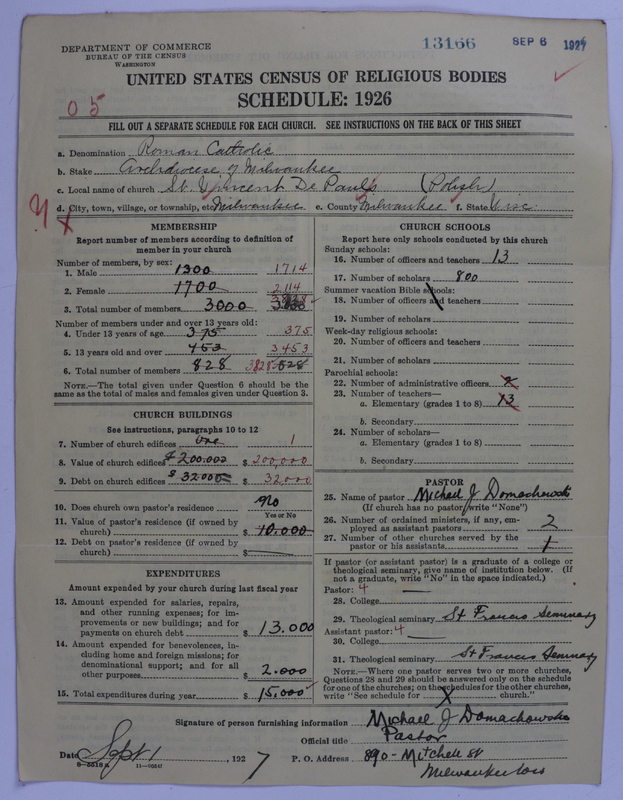 DEPARTMENT OF COMMERCE
BUREAU OF THE CENSUS
WASHINGTON
13166
SEP 6 1927
UNITED STATES CENSUS OF RELIGIOUS BODIES
SCHEDULE: 1926
05
FILL OUT A SEPARATE SCHEDULE FOR EACH CHURCH. SEE INSTRUCTIONS ON THE BACK OF THIS SHEET
a. Denomination Roman Catholic
b. Stake Archdiocese of Milwaukee
c. Local name of church St. Vincent De Paul's (Polish)
d. City, town, village, or township, etc. Milwaukee e. County Milwaukee f. State Wisc.
MEMBERSHIP
Report number of members according to definition of member in your church
Number of members, by sex:
1. Male 1300 1714
2. Female 1700 2114
3. Total number of members 3000 3828
Number of members under and over 13 years old:
4. Under 13 years of age 375 375
5. 13 years old and over 453 3453
6. Total number of members 828 3828 828
NOTE.—The total given under Question 6 should be the same as the total of males and females given under Question 3.
CHURCH BUILDINGS
See instructions, paragraphs 10 to 12
7. Number of church edifices one 1
8. Value of church edifices $200.000 $ 200,000
9. Debt on church edifices $32.000 $ 32000
10. Does church own pastor's residence No
Yes or No
11. Value of pastor's residence (if owned by church) $ 10.000
12. Debt on pastor's residence (if owned by church) $
EXPENDITURES
Amount expended by church during last fiscal year
13. Amount expended for salaries, repairs, and other running expenses; for improvements or new buildings; and for payments on church debt $ 13.000
14. Amount expended for benevolences, including home and foreign missions; for denominational support; and for all other purposes $ 2.000
15. Total expenditures during year $ 15.000
CHURCH SCHOOLS
Report here only schools conducted by this church
Sunday schools:
16. Number of officers and teachers 13
17. Number of scholars 800
Summer vacation Bible schools:
18. Number of officers and teachers
19. Number of scholars
Week-day religious schools:
20. Number of officers and teachers
21. Number of scholars
Parochial schools:
22. Number of administrative officers
23. Number of teachers—
a. Elementary (grades 1 to 8) 13
b. Secondary
24. Number of scholars—
a. Elementary (grades 1 to 8)
b. Secondary
PASTOR
25. Name of pastor Michael J Domachowski
(If church has no pastor, write "None")
26. Number of ordained ministers, if any, employed as assistant pastors 2
27. Number of other churches served by the pastor or his assistants 1
If pastor (or assistant pastor) is a graduate of a college or theological seminary, give name of institution below. (If not a graduate, write "No" in the space indicated.)
Pastor: 4
28. College
29. Theological seminary St Francis Seminary
Assistant pastor: 4
30. College
31. Theological seminary St Francis Seminary
NOTE.—Where one pastor serves two or more churches, Questions 28 and 29 should be answered only on the schedule for one of the churches; on the schedules for the other churches, write "See schedule for church."
Signature of person furnishing information Michael J Domachowski
Official title Pastor
Date Sept 1, 1927 P. O. Address 890 - Mitchell St
Milwaukee Wis
8-5318A 11-90247